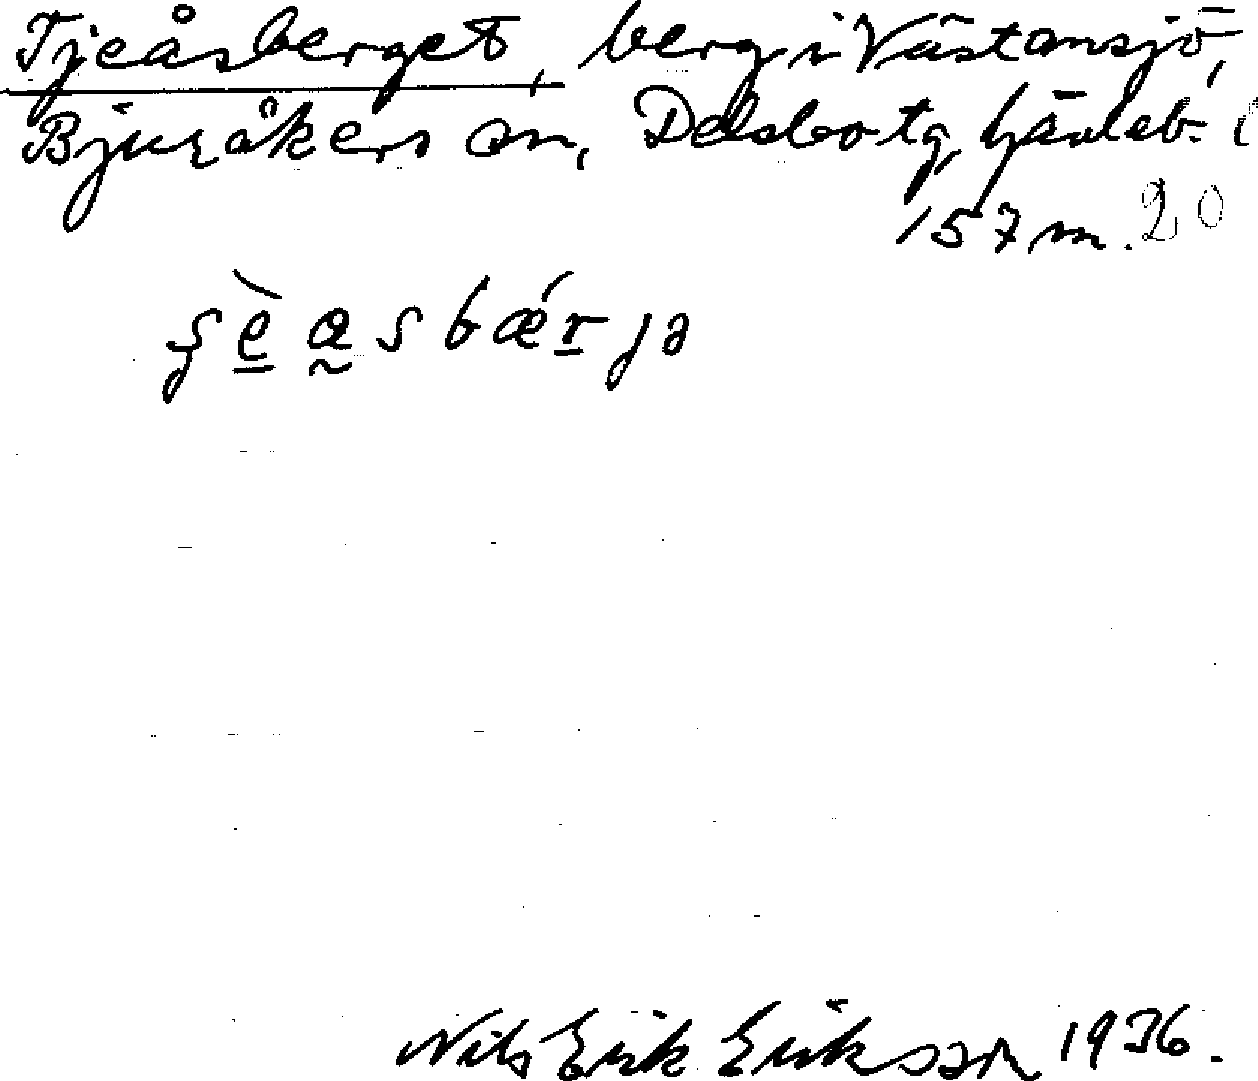 Tjeåsberget, berg i Västansjö,
Bjuråkers sn, Delsbo tg, Gävleb. l
157 m. 20
Nils Erik Eriksson 1936.